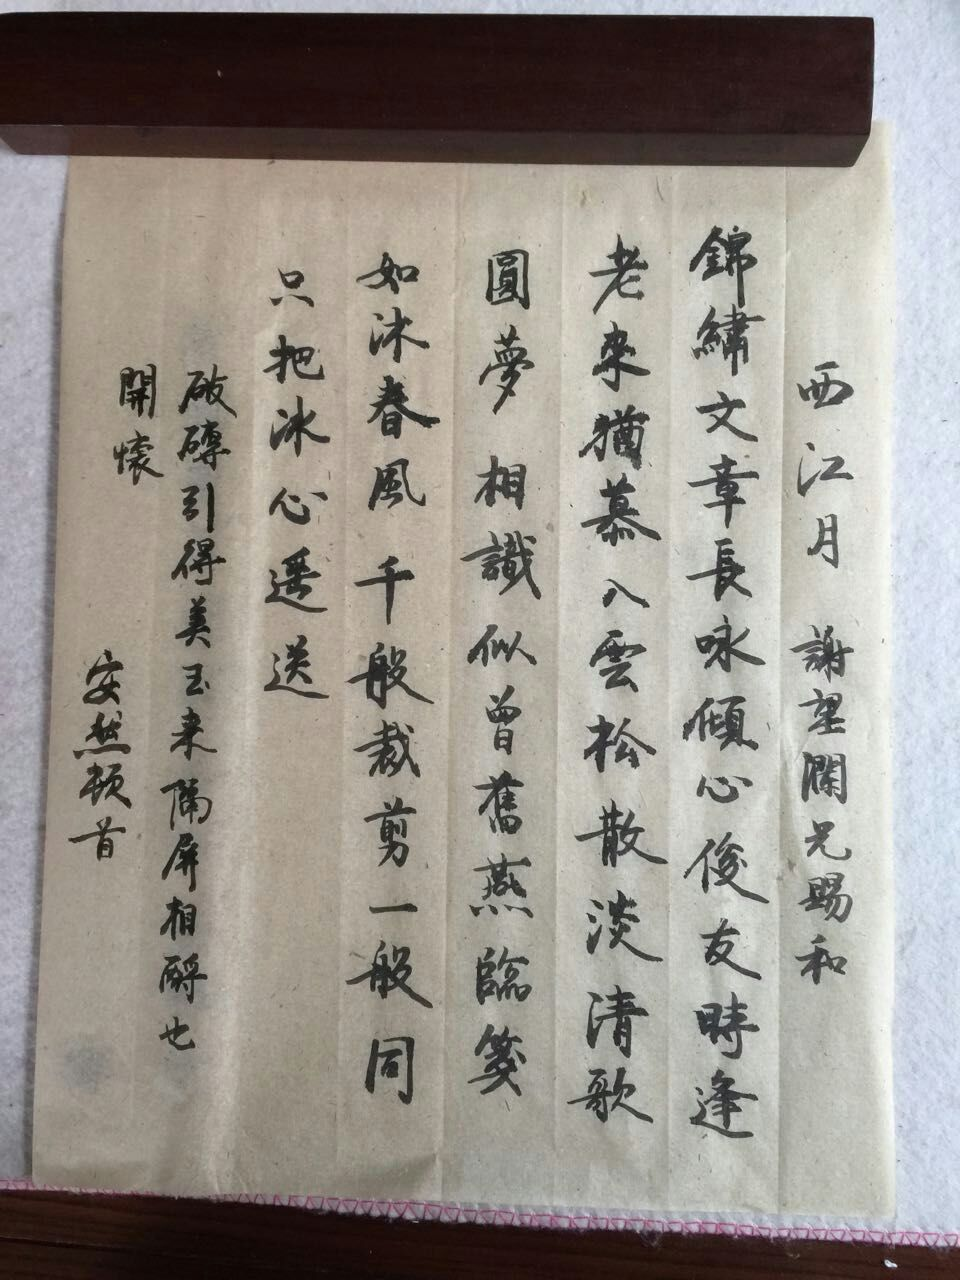 西江月 謝望瀾兄賜和
錦繡文章長咏傾心俊友時逢
老來猶慕入雲松散淡清歌
圓夢 相識似曾舊燕臨箋
如沐春風千般裁剪一般同
只把冰心遥送
破磚引得美玉来隔屏相酹也
開懷
安然頓首